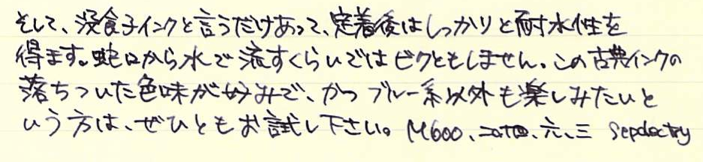 そして、没食子インクと言うだけあって、定着後はしっかりと耐水性を
得ます。蛇口から水で流すくらいではビクともしません。この古典インクの
落ちついた色味が好みで、かつブルー系以外も楽しみたいと
いう方は、ぜひともお試し下さい。M600、六、三